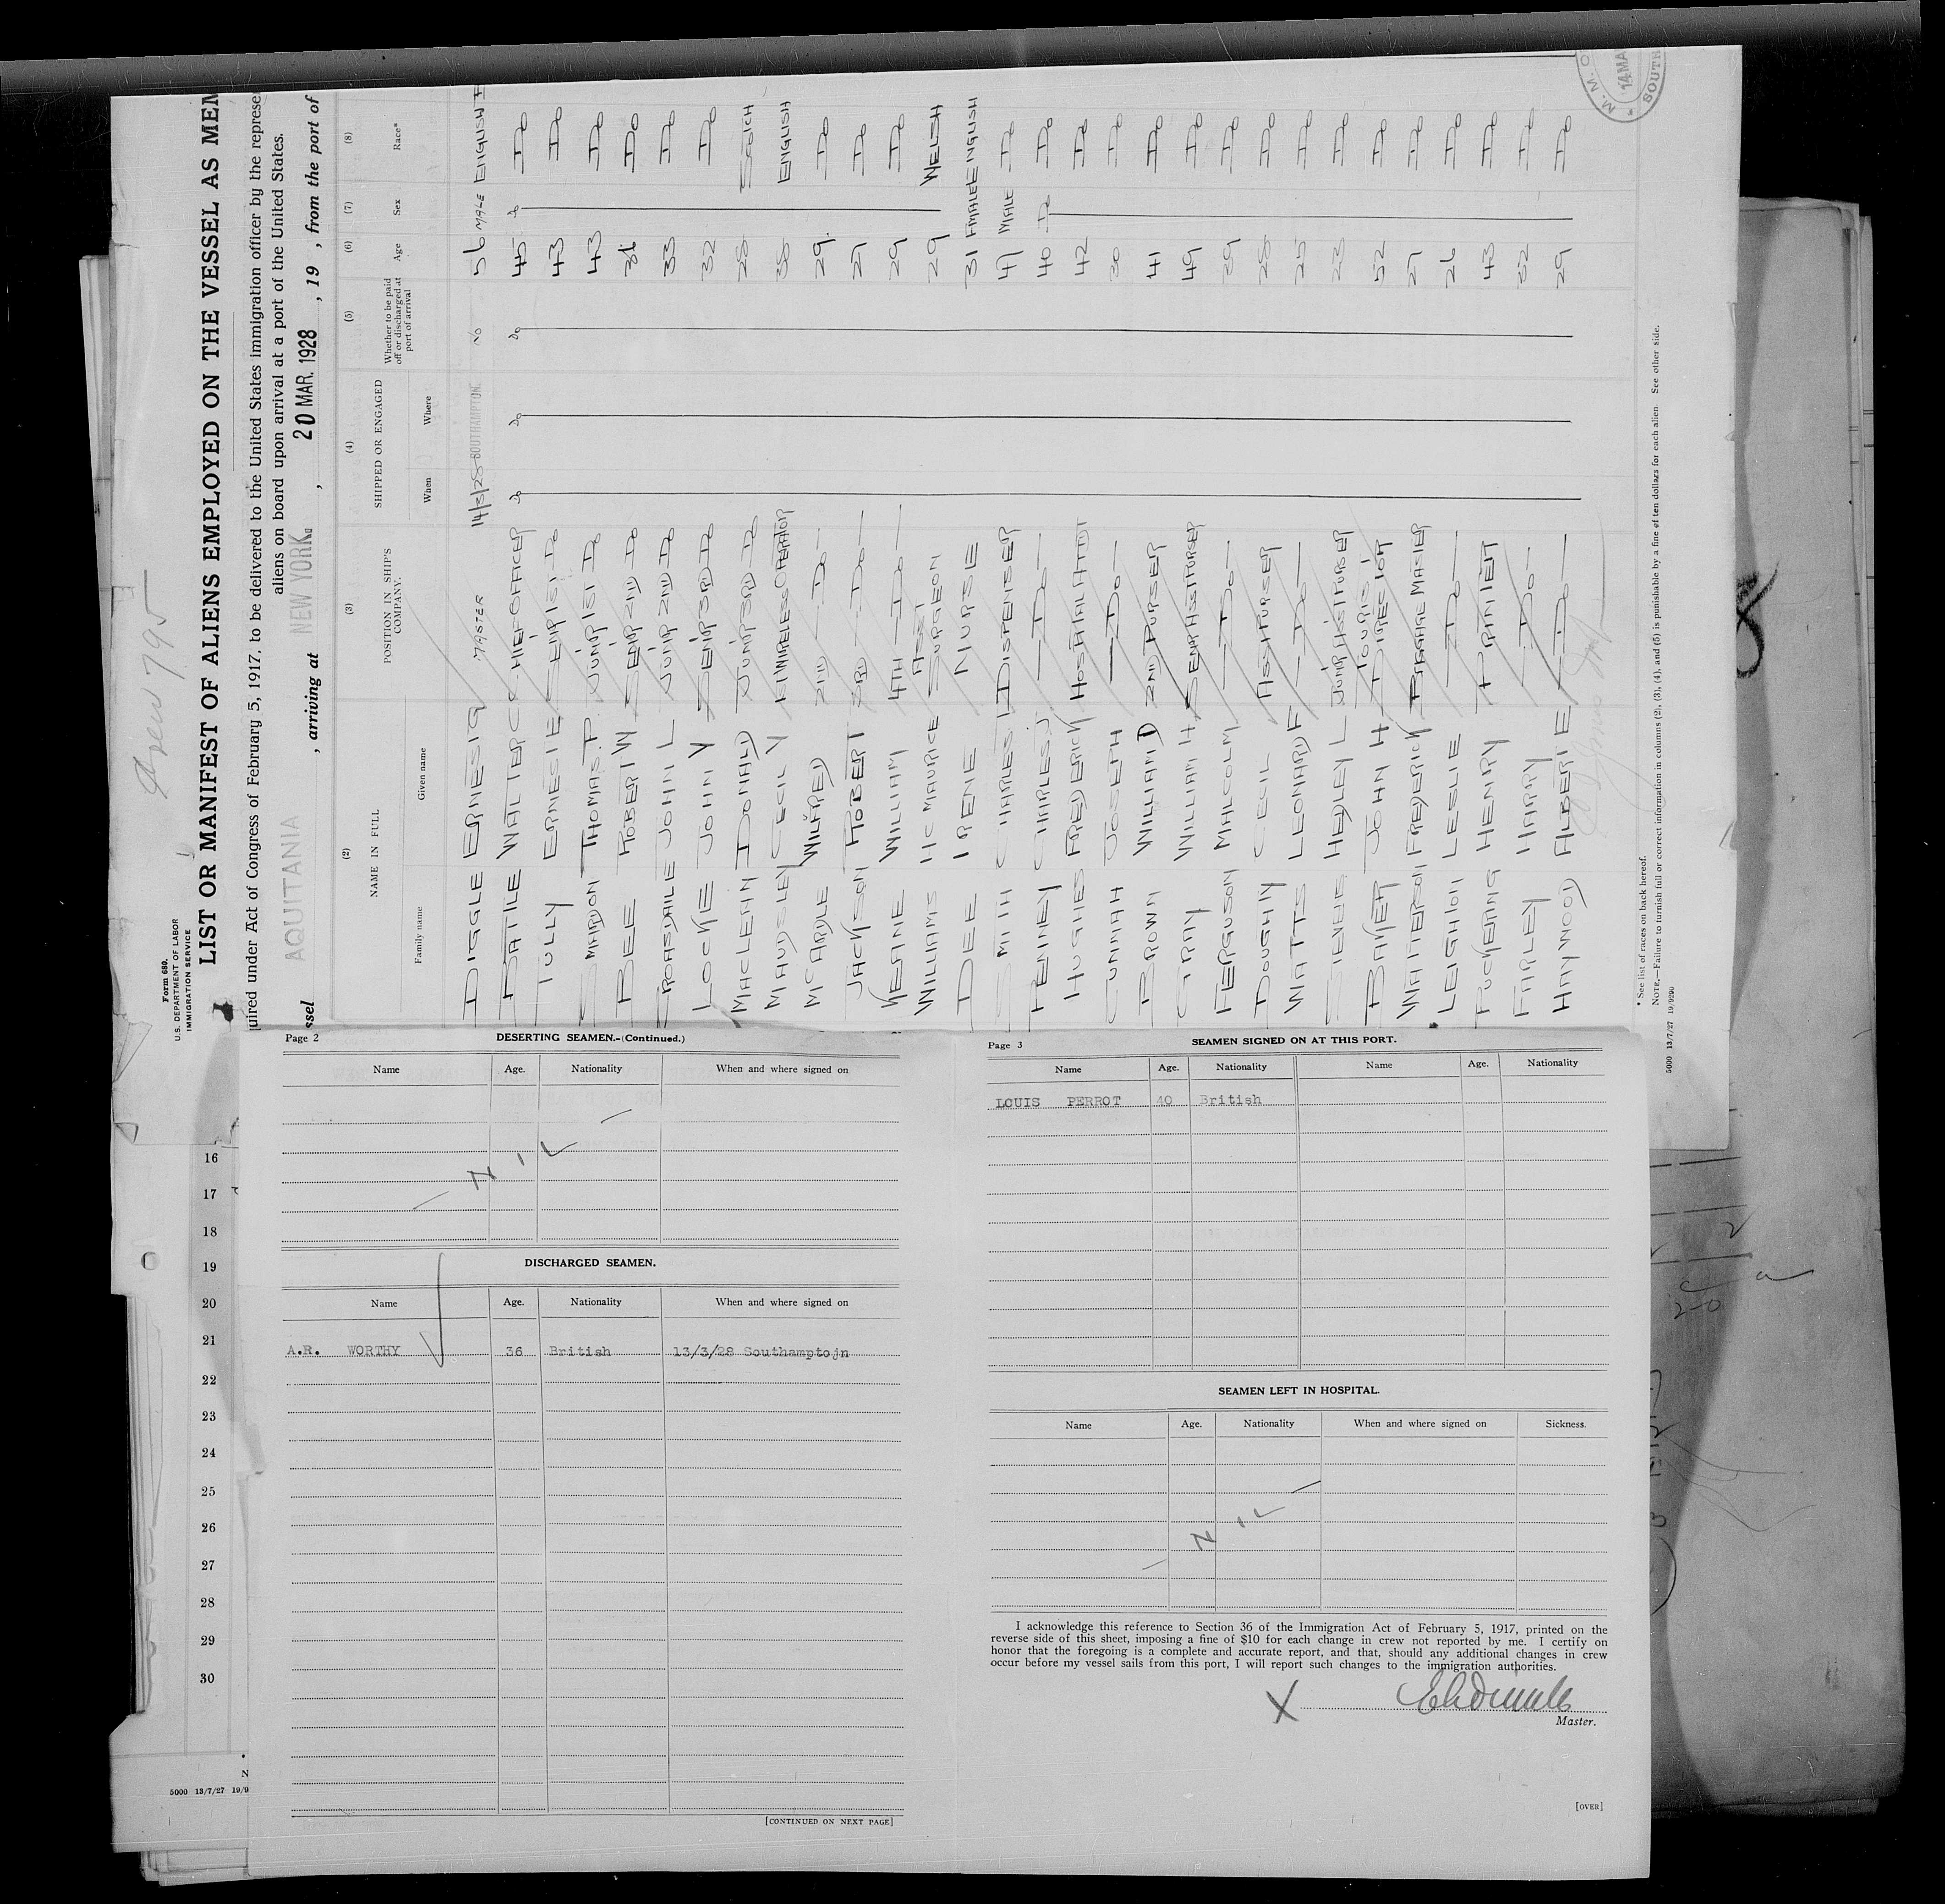 Crew 795
Form 680.
U.S. DEPARTMENT OF LABOR
IMMIGRATION SERVICE
LIST OR MANIFEST OF ALIENS EMPLOYED ON THE VESSEL AS MEM
uired under Act of Congress of February 5, 1917, to be delivered to the United States immigration officer by the represe
aliens on board upon arrival at a port of the United States.
ssel AQUITANIA , arriving at NEW YORK. , 20 MAR. 1928 , 19 , from the port of
(2) (3) (4) (5) (6) (7) (8)
NAME IN FULL POSITION IN SHIP'S COMPANY. SHIPPED OR ENGAGED Whether to be paid off or discharged at port of arrival Age Sex Race*
Family name Given name When Where
DIGGLE ERNEST G MASTER 14/3/28 SOUTHAMPTON. NO 56 MALE ENGLISH
BATTLE WALTER C CHIEF OFFICER Do Do Do 45 Do Do
TULLY ERNEST E SENR 1ST Do 43 Do
MARDON THOMAS. P JUNR 1ST Do 43 Do
BEE ROBERT W SENR 2ND Do 36 Do
CROASDAILE JOHN L JUNR 2ND Do 33 Do
LOCKE JOHN Y SENR 3RD Do 32 Do
MACLEAN DONALD JUNR 3RD Do 28 SCOTCH
MAUDSLEY CECIL V WIRELESS OPERATOR 38 ENGLISH
McARDLE WILFRED 2ND — Do — 29 Do
JACKSON ROBERT 3RD — Do — 27 Do
KEANE WILLIAM 4TH — Do — 29 Do
WILLIAMS H C MAURICE ASST SURGEON 29 WELSH
DEE IRENE NURSE 31 FMALE ENGLISH
SMITH CHARLES DISPENSER 47 MALE Do
FENNEY CHARLES J — Do — 40 Do Do
HUGHES FREDERICK HOSPITAL ATTDT 42 Do
CUNNAH JOSEPH — Do — 30 Do
BROWN WILLIAM D 2ND PURSER 41 Do
GRAY WILLIAM H SENR ASST PURSER 49 Do
FERGUSON MALCOLM — Do — 39 Do
DOUGHTY CECIL ASST PURSER 28 Do
WATTS LEONARD F — Do — 25 Do
STEVENS HEDLEY L JUNR ASST PURSER 23 Do
BAKER JOHN H TOURIST DIRECTOR 52 Do
WATTERSON FREDERICK BAGGAGE MASTER 27 Do
LEIGHTON LESLIE — Do — 26 Do
PICKERING HENRY PRINTER 43 Do
FARLEY HARRY — Do — 52 Do
HAYWOOD ALBERT E — Do — 29 Do
* See list of races on back hereof.
NOTE.—Failure to furnish full or correct information in columns (2), (3), (4), and (5) is punishable by a fine of ten dollars for each alien. See other side.
5000 13/7/27 19/9290
M. M. O
14 MA
SOUTH
16
17
18
19
20
21
22
23
24
25
26
27
28
29
30
N
5000 13/7/27 19/9
Page 2 DESERTING SEAMEN.-(Continued.)
Name Age. Nationality When and where signed on
— NIL —
DISCHARGED SEAMEN.
Name Age. Nationality When and where signed on
A.R. WORTHY 36 British 13/3/28 Southamptojn
[CONTINUED ON NEXT PAGE]
Page 3 SEAMEN SIGNED ON AT THIS PORT.
Name Age. Nationality Name Age. Nationality
LOUIS PERROT 40 British
SEAMEN LEFT IN HOSPITAL.
Name Age. Nationality When and where signed on Sickness.
— NIL —
I acknowledge this reference to Section 36 of the Immigration Act of February 5, 1917, printed on the
reverse side of this sheet, imposing a fine of $10 for each change in crew not reported by me. I certify on
honor that the foregoing is a complete and accurate report, and that, should any additional changes in crew
occur before my vessel sails from this port, I will report such changes to the immigration authorities.
X
Master.
[OVER]